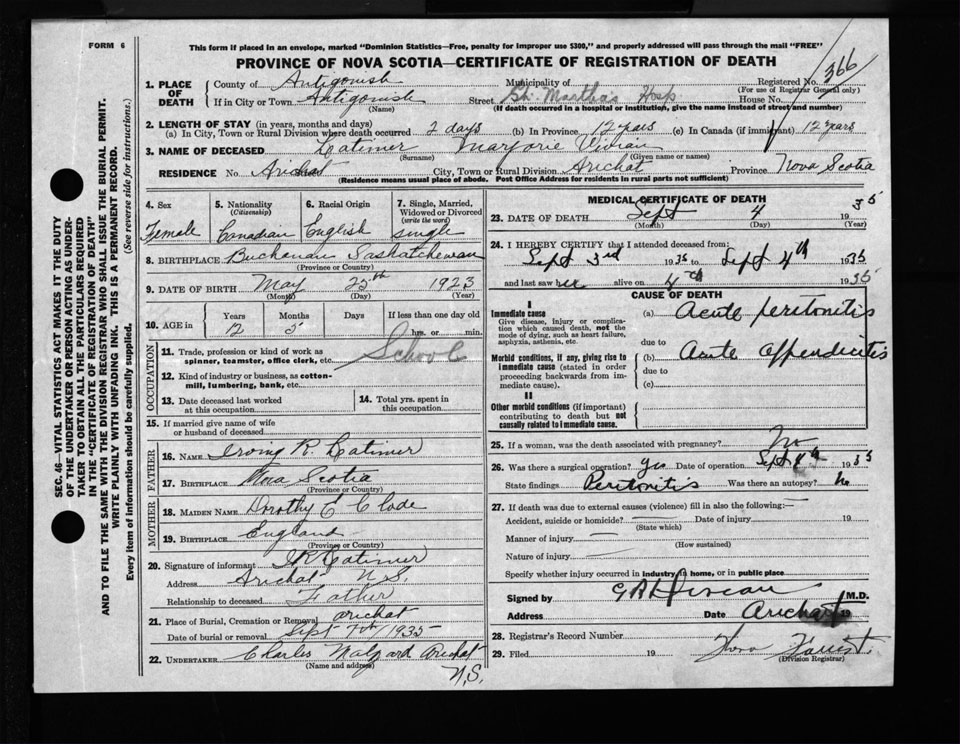 FORM 6
This form if placed in an envelope, marked "Dominion Statistics—Free, penalty for improper use $300," and properly addressed will pass through the mail "FREE"
PROVINCE OF NOVA SCOTIA—CERTIFICATE OF REGISTRATION OF DEATH
1. PLACE OF DEATH County of Antigonish Municipality of Registered No. 366
(For use of Registrar General only)
If in City or Town Antigonish Street St. Martha's Hosp House No.
(Name) (If death occurred in a hospital or institution, give the name instead of street and number)
2. LENGTH OF STAY (in years, months and days)
(a) In City, Town or Rural Division where death occurred 2 days (b) In Province 12 years (c) In Canada (if immigrant) 12 years
3. NAME OF DECEASED Latimer Marjorie Vivian
(Surname) (Given name or names)
RESIDENCE No. Arichat City, Town or Rural Division Arichat Province Nova Scotia
(Residence means usual place of abode. Post Office Address for residents in rural parts not sufficient)
SEC. 46—VITAL STATISTICS ACT MAKES IT THE DUTY
OF THE UNDERTAKER OR PERSON ACTING AS UNDER-
TAKER TO OBTAIN ALL THE PARTICULARS REQUIRED
IN THE "CERTIFICATE OF REGISTRATION OF DEATH"
AND TO FILE THE SAME WITH THE DIVISION REGISTRAR WHO SHALL ISSUE THE BURIAL PERMIT.
WRITE PLAINLY WITH UNFADING INK. THIS IS A PERMANENT RECORD.
Every item of information should be carefully supplied. (See reverse side for instructions.)
4. Sex 5. Nationality (Citizenship) 6. Racial Origin 7. Single, Married, Widowed or Divorced (write the word)
Female Canadian English Single
8. BIRTHPLACE Buchanan Saskatchewan
(Province or Country)
9. DATE OF BIRTH May 25th 1923
(Month) (Day) (Year)
10. AGE in Years Months Days If less than one day old
12 5 hrs. or min.
OCCUPATION
11. Trade, profession or kind of work as spinner, teamster, office clerk, etc. School
12. Kind of industry or business, as cotton-mill, lumbering, bank, etc.
13. Date deceased last worked at this occupation
14. Total yrs. spent in this occupation
15. If married give name of wife or husband of deceased
FATHER
16. NAME Irving R. Latimer
17. BIRTHPLACE Nova Scotia
(Province or Country)
MOTHER
18. MAIDEN NAME Dorothy E Clode
19. BIRTHPLACE England
(Province or Country)
20. Signature of informant I R Latimer
Address Arichat N.S.
Relationship to deceased Father
21. Place of Burial, Cremation or Removal Arichat
Date of burial or removal Sept 7th/1935
22. UNDERTAKER Charles Arichat
(Name and address) N.S.
MEDICAL CERTIFICATE OF DEATH
23. DATE OF DEATH Sept 4 1935
(Month) (Day) (Year)
24. I HEREBY CERTIFY that I attended deceased from:
Sept 3rd 1935 to Sept 4th 1935
and last saw her alive on 4th 1935
CAUSE OF DEATH
I
Immediate cause
Give disease, injury or complication which caused death, not the mode of dying, such as heart failure, asphyxia, asthenia, etc.
(a) Acute peritonitis
due to
Morbid conditions, if any, giving rise to immediate cause (stated in order proceeding backwards from immediate cause).
(b) Acute appendicitis
due to
(c)
II
Other morbid conditions (if important) contributing to death but not causally related to immediate cause.
25. If a woman, was the death associated with pregnancy? No
26. Was there a surgical operation? yes Date of operation Sept 4th 1935
State findings Peritonitis Was there an autopsy? No
27. If death was due to external causes (violence) fill in also the following:—
Accident, suicide or homicide? — Date of injury 19
(State which)
Manner of injury —
(How sustained)
Nature of injury —
Specify whether injury occurred in industry, home, or in public place
Signed by M.D.
Address Date Arichat 19
28. Registrar's Record Number
29. Filed 19
(Division Registrar)